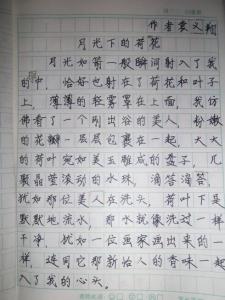 作者袁义翔
月光下的荷花
月光如箭一般瞬间射入了我
的中，恰好也射在了荷花和叶子
上，薄薄的轻雾罩在上面，我仿
佛看了一个刚出浴的美人，粉嫩
的花瓣一层层包裹在一起，大大
的荷叶宛如美玉雕成的盘子，几
聚晶莹滚动的水珠，滴答滴答，
犹如那位美人在洗头，荷叶下是
默默地流水，那水就像洗过一样
干净，犹如一位画家画出来的一
样，连同它那新怡人的香味一起
入了我的心头。